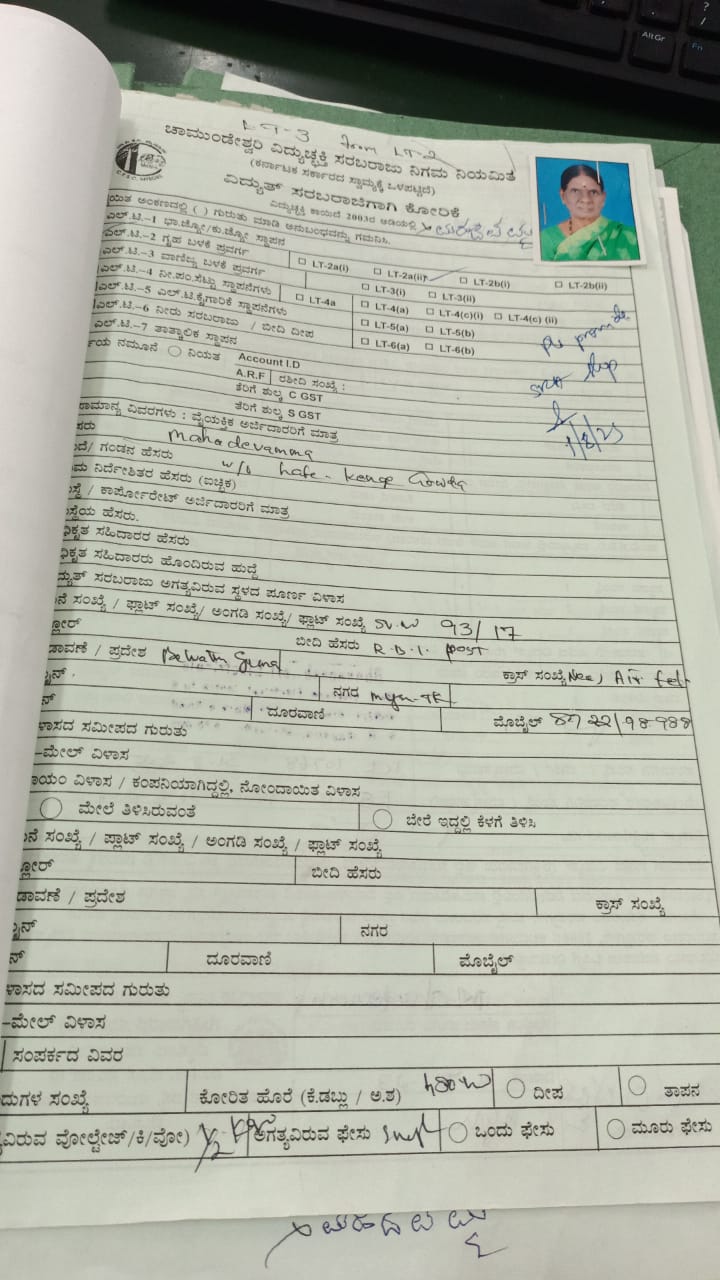 LT-3 from LT-2
ಚಾಮುಂಡೇಶ್ವರಿ ವಿದ್ಯುಚ್ಛಕ್ತಿ ಸರಬರಾಜು ನಿಗಮ ನಿಯಮಿತ
(ಕರ್ನಾಟಕ ಸರ್ಕಾರದ ಸ್ವಾಮ್ಯಕ್ಕೆ ಒಳಪಟ್ಟಿದೆ)
ವಿದ್ಯುತ್ ಸರಬರಾಜಿಗಾಗಿ ಕೋರಿಕೆ
ವಿದ್ಯುಚ್ಛಕ್ತಿ ಕಾಯಿದೆ 2003ರ ಅಡಿಯಲ್ಲಿ
ಅಂಕಣದಲ್ಲಿ ( ) ಗುರುತು ಮಾಡಿ ಅನುಬಂಧವನ್ನು ಗಮನಿಸಿ.
ಎಲ್.ಟಿ.-1 ಭಾ.ಜ್ಯೋ/ಕು.ಜ್ಯೋ ಸ್ಥಾಪನ
ಎಲ್.ಟಿ.-2 ಗೃಹ ಬಳಕೆ ಪ್ರವರ್ಗ LT-2a(i) LT-2a(ii) LT-2b(i) LT-2b(ii)
ಎಲ್.ಟಿ.-3 ವಾಣಿಜ್ಯ ಬಳಕೆ ಪ್ರವರ್ಗ LT-3(i) LT-3(ii)
ಎಲ್.ಟಿ.-4 ನೀ.ಪಂ.ಸೆಟ್ಟು ಸ್ಥಾಪನೆಗಳು LT-4a LT-4(a) LT-4(c)(i) LT-4(c) (ii)
ಎಲ್.ಟಿ.-5 ಎಲ್.ಟಿ.ಕೈಗಾರಿಕೆ ಸ್ಥಾಪನೆಗಳು LT-5(a) LT-5(b)
ಎಲ್.ಟಿ.-6 ನೀರು ಸರಬರಾಜು / ಬೀದಿ ದೀಪ LT-6(a) LT-6(b)
ಎಲ್.ಟಿ.-7 ತಾತ್ಕಾಲಿಕ ಸ್ಥಾಪನ
ನಮೂನೆ ನಿಯತ Account I.D
A.R.F ರಶೀದಿ ಸಂಖ್ಯೆ :
ತೆರಿಗೆ ಶುಲ್ಕ C GST
ತೆರಿಗೆ ಶುಲ್ಕ S GST
1/8/25
ವಿವರಗಳು : ವೈಯಕ್ತಿಕ ಅರ್ಜಿದಾರರಿಗೆ ಮಾತ್ರ
Mahadevamma
ಗಂಡನ ಹೆಸರು w/o Late - Kenge Gowda
ನಿರ್ದೇಶಿತರ ಹೆಸರು (ಐಚ್ಛಿಕ)
/ ಕಾರ್ಪೋರೇಟ್ ಅರ್ಜಿದಾರರಿಗೆ ಮಾತ್ರ
ಹೆಸರು.
ಸಹಿದಾರರ ಹೆಸರು
ಸಹಿದಾರರು ಹೊಂದಿರುವ ಹುದ್ದೆ
ಸರಬರಾಜು ಅಗತ್ಯವಿರುವ ಸ್ಥಳದ ಪೂರ್ಣ ವಿಳಾಸ
ಸಂಖ್ಯೆ / ಫ್ಲಾಟ್ ಸಂಖ್ಯೆ/ ಅಂಗಡಿ ಸಂಖ್ಯೆ/ ಫ್ಲಾಟ್ ಸಂಖ್ಯೆ 93/17
ಬೀದಿ ಹೆಸರು R.B.I. post
/ ಪ್ರದೇಶ ಕ್ರಾಸ್ ಸಂಖ್ಯೆ
ನಗರ
ದೂರವಾಣಿ ಮೊಬೈಲ್
ಸಮೀಪದ ಗುರುತು
-ಮೇಲ್ ವಿಳಾಸ
ವಿಳಾಸ / ಕಂಪನಿಯಾಗಿದ್ದಲ್ಲಿ, ನೋಂದಾಯಿತ ವಿಳಾಸ
ಮೇಲೆ ತಿಳಿಸಿರುವಂತೆ ಬೇರೆ ಇದ್ದಲ್ಲಿ ಕೆಳಗೆ ತಿಳಿಸಿ
ಸಂಖ್ಯೆ / ಪ್ಲಾಟ್ ಸಂಖ್ಯೆ / ಅಂಗಡಿ ಸಂಖ್ಯೆ / ಫ್ಲಾಟ್ ಸಂಖ್ಯೆ
ಬೀದಿ ಹೆಸರು
/ ಪ್ರದೇಶ ಕ್ರಾಸ್ ಸಂಖ್ಯೆ
ನಗರ
ದೂರವಾಣಿ ಮೊಬೈಲ್
ಸಮೀಪದ ಗುರುತು
-ಮೇಲ್ ವಿಳಾಸ
ಸಂಪರ್ಕದ ವಿವರ
ಸಂಖ್ಯೆ ಕೋರಿತ ಹೊರೆ (ಕೆ.ಡಬ್ಲು / ಅ.ಶ) ದೀಪ ತಾಪನ
ವೋಲ್ಟೇಜ್/ಕಿ/ವೋ) ಅಗತ್ಯವಿರುವ ಫೇಸು ಒಂದು ಫೇಸು ಮೂರು ಫೇಸು